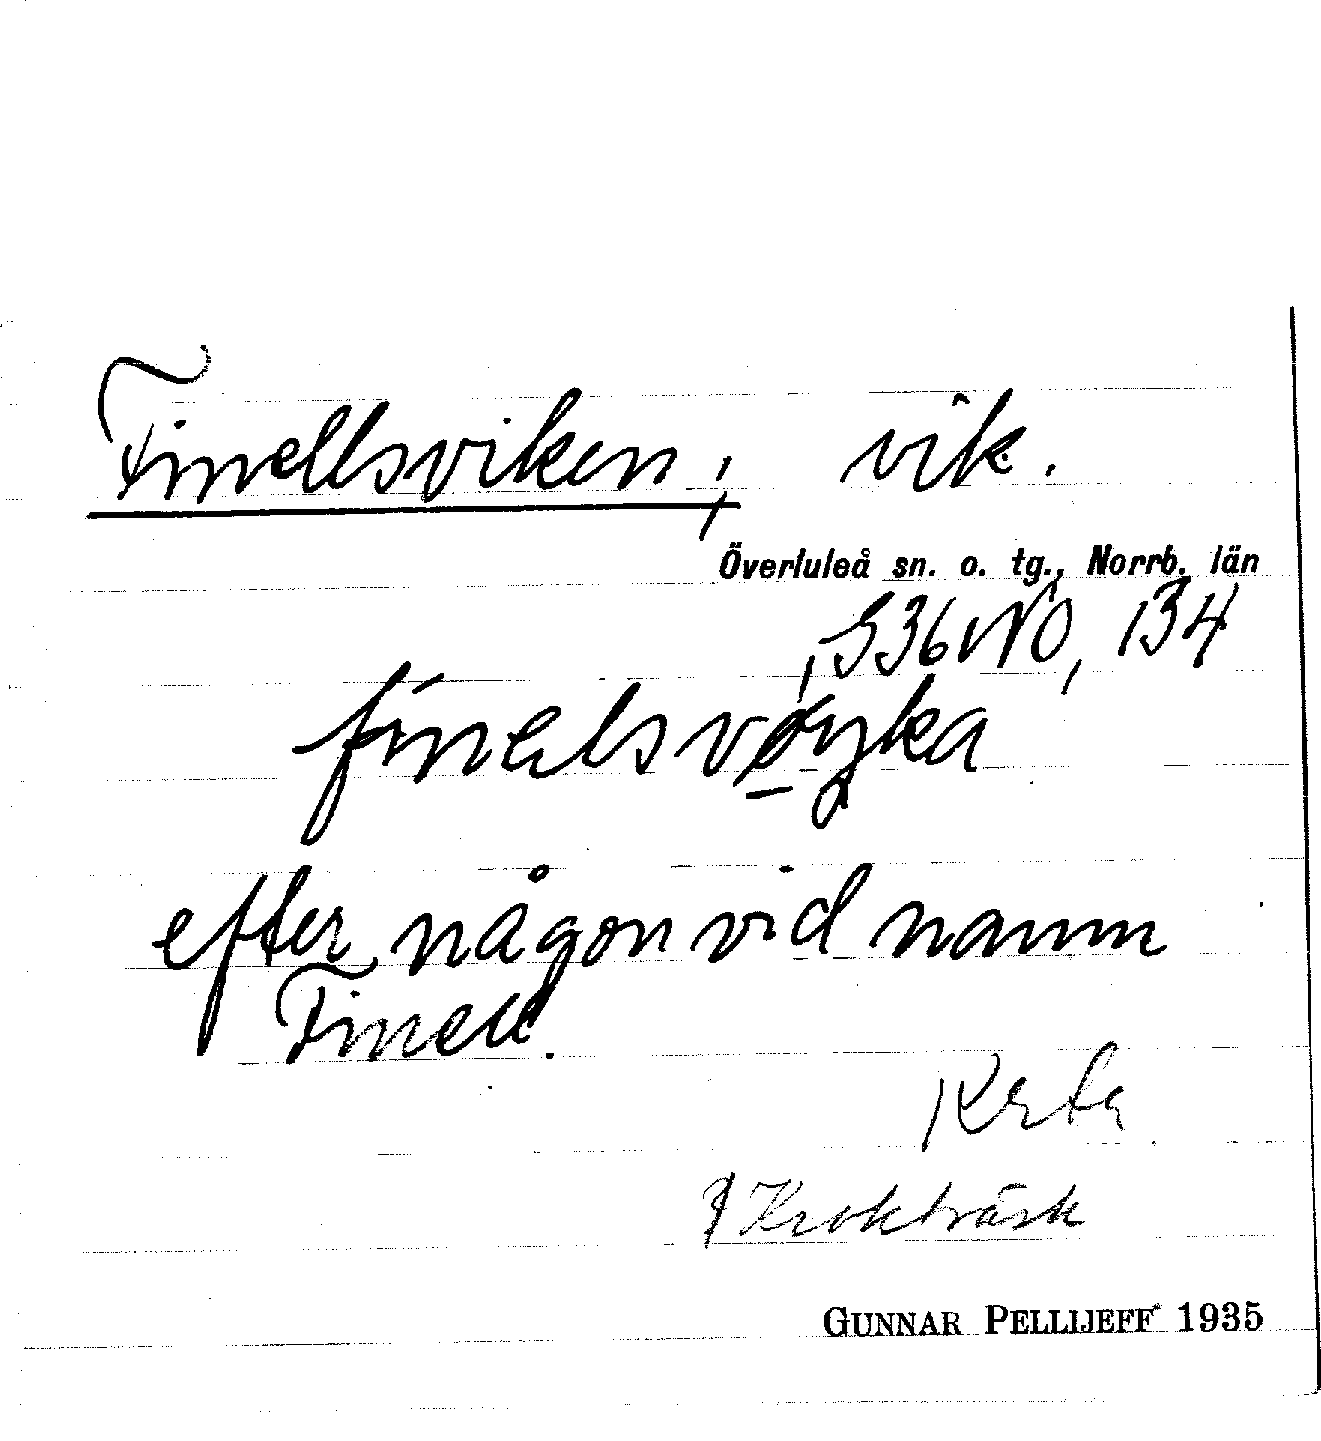 Finellsviken, vik.
Överluleå sn. o. tg., Norrb. län
, S36NO, 134
finelsvøyka
efter någon vid namn
Finell.
Krokträsk
GUNNAR PELLIJEFF 1935